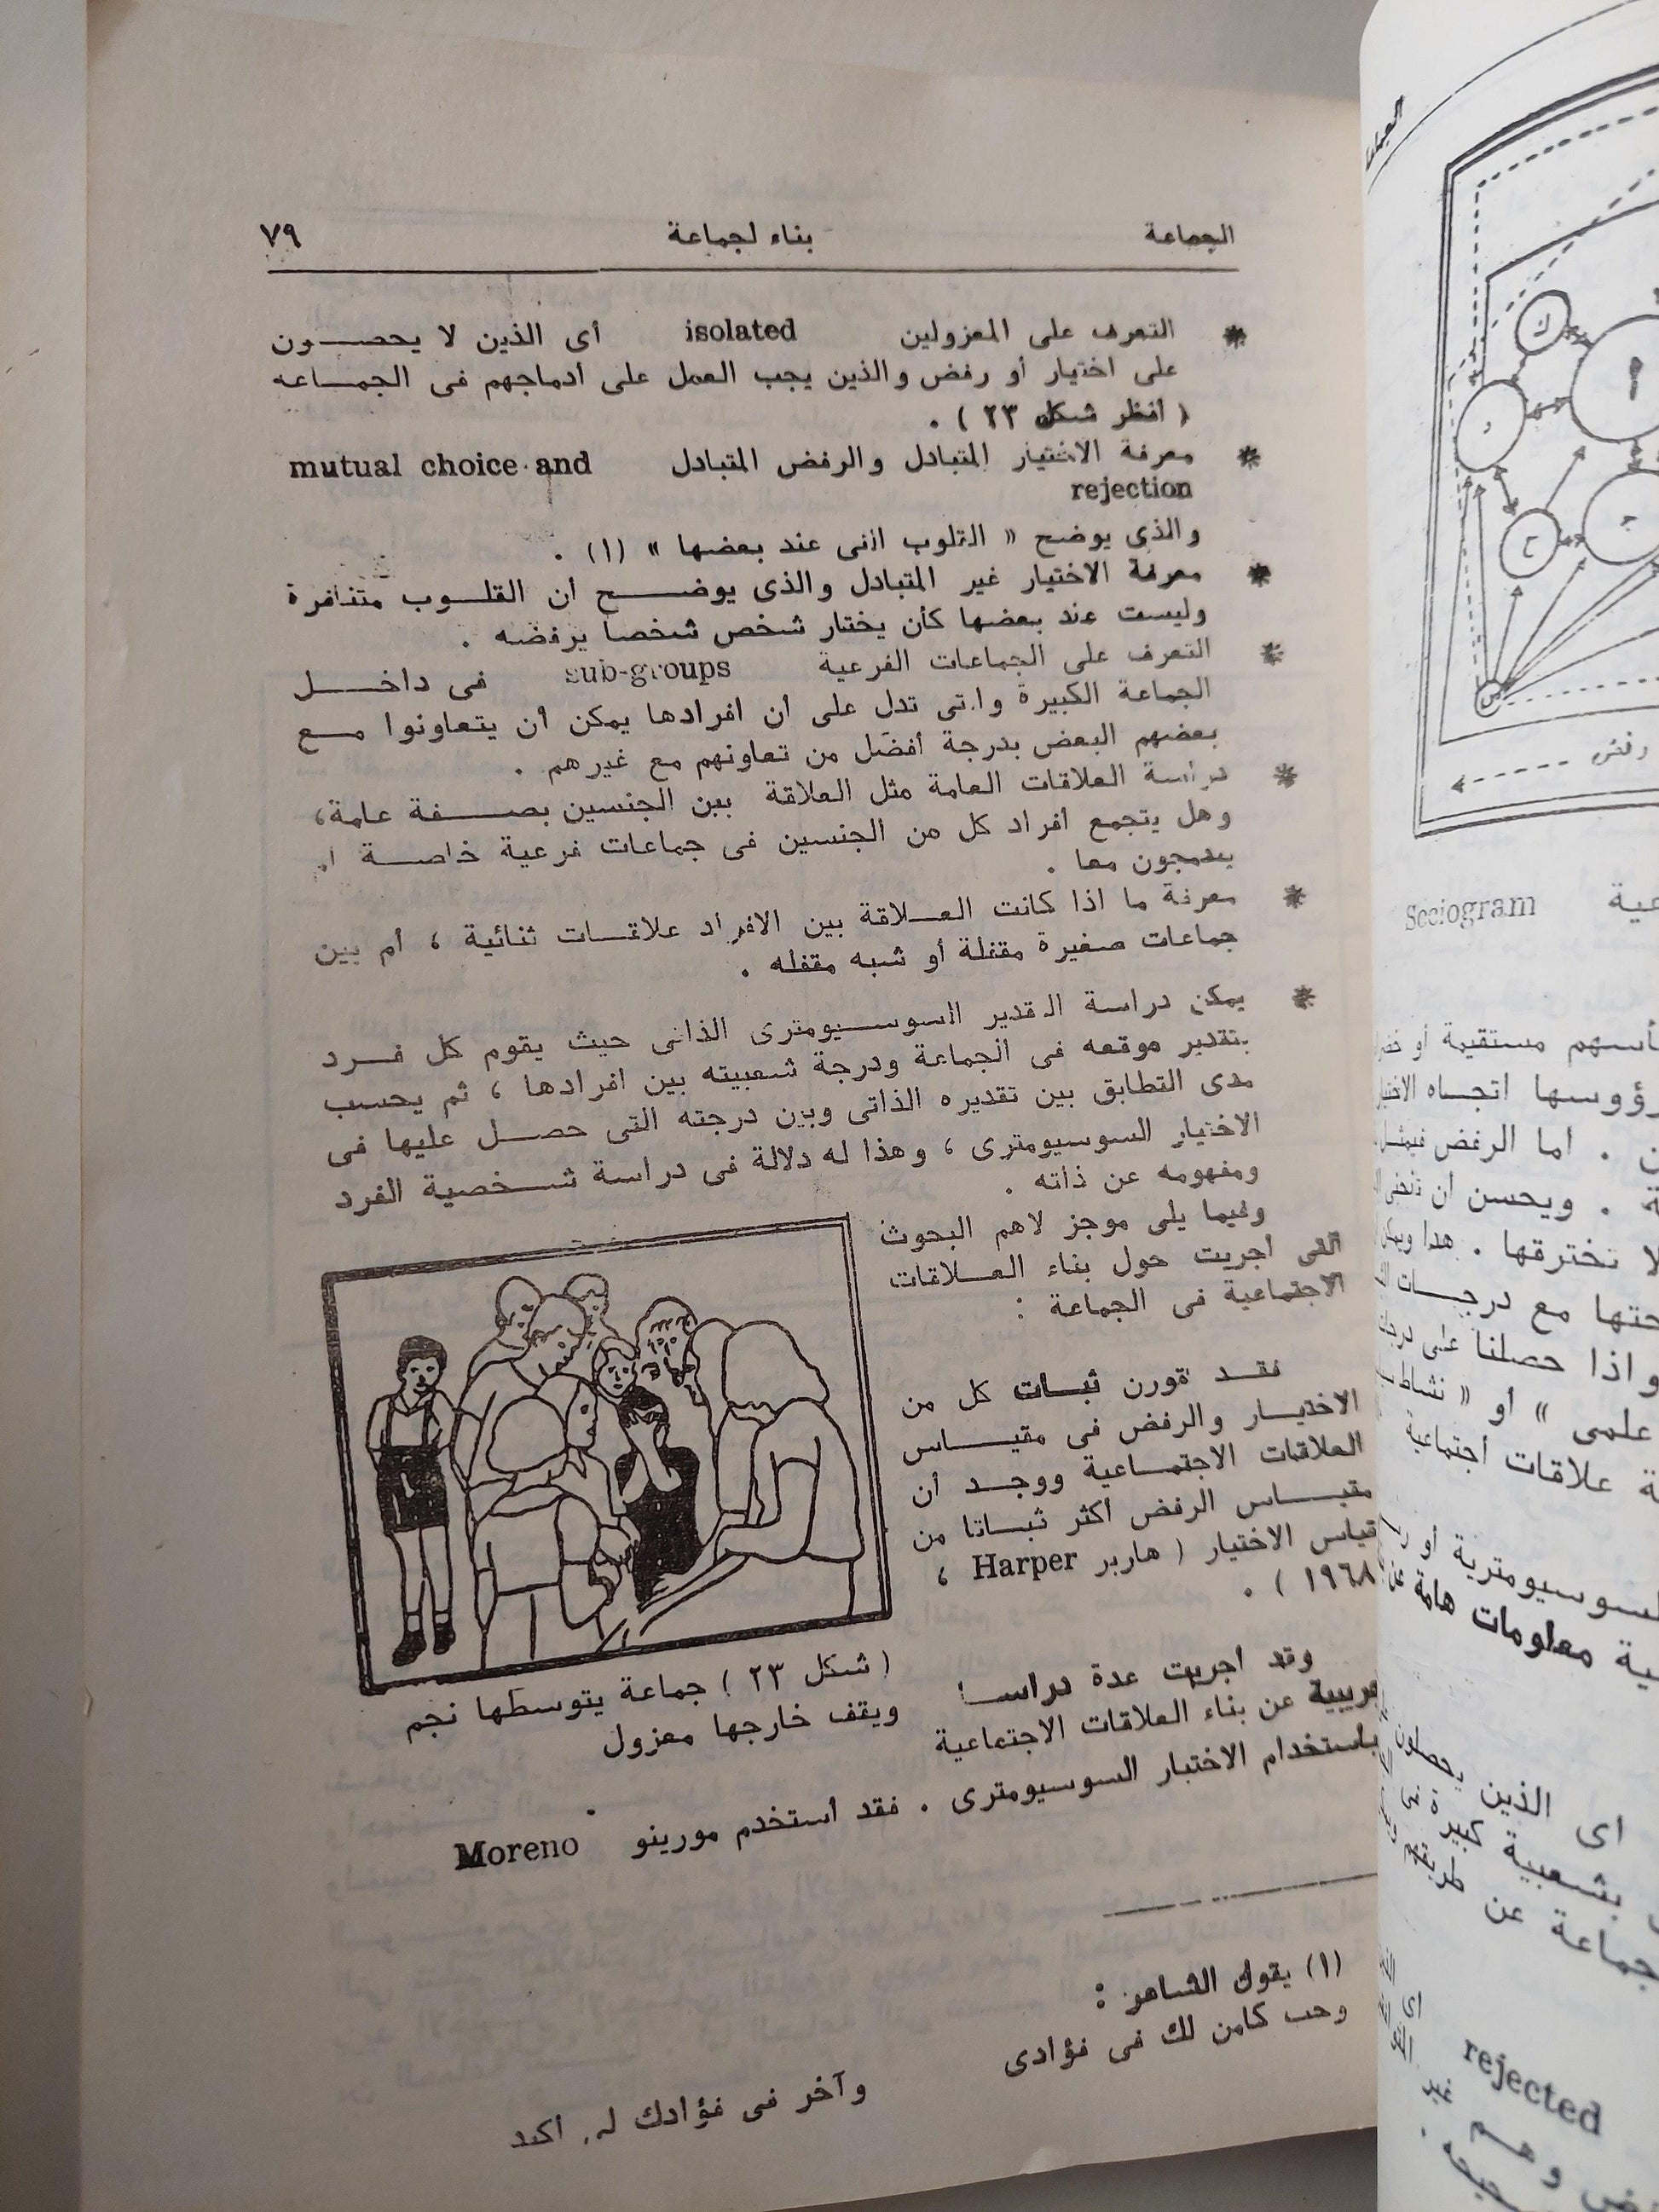 الجماعة بناء لجماعة ٧٩
* التعرف على المعزولين isolated أى الذين لا يحصـــون
على اختيار أو رفض والذين يجب العمل على أدماجهم فى الجمـاعه
( أنظر شكل ٢٣ ) .
* معرفة الاختيار المتبادل والرفض المتبادل mutual choice and
rejection
والذى يوضح « القلوب اننى عند بعضها » (١) .
* معرفة الاختيار غير المتبادل والذى يوضـــح أن القلــوب متنافرة
وليست عند بعضها كأن يختار شخص شخصا يرفضه .
* التعرف على الجماعات الفرعية sub-groups فى داخـــل
الجماعة الكبيرة واتى تدل على أن افرادها يمكن أن يتعاونوا مــع
بعضهم البعض بدرجة أفضل من تعاونهم مع غيرهم .
* دراسة العلاقات العامة مثل العلاقة بين الجنسين بصـــفة عامة،
وهل يتجمع أفراد كل من الجنسين فى جماعات فرعية خاصــة ا.
يندمجون معا .
* معرفة ما اذا كانت العــلاقة بين الافراد علاقــات ثنائية ، أم بين
جماعات صغيرة مقفلة أو شبه مقفله .
* يمكن دراسة القدير السوســيومترى الذاتى حيث يقوم كل فــرد
بتقدير موقعه فى الجماعة ودرجة شعبيته بين افرادها ، ثم يحسب
مدى التطابق بين تقديره الذاتى وبين درجته التى حصــل عليها فى
الاختيار السوسيومترى ، وهذا له دلالة فى دراسة شــخصية الفرد
ومفهومه عن ذاته .
وفيما يلى موجز لاهم البحوث
التى أجريت حول بناء العــلاقات
الاجتماعية فى الجماعة :
فقــد قورن ثبــات كل من
الاختيــار والرفض فى مقيـــاس
العلاقات الاجتمــاعية ووجــد أن
مقيـــاس الرفض أكثر ثبــاتا من
قياس الاختيار ( هاربر Harper ،
١٩٦٨ ) .
( شكل ٢٣ ) جماعة يتوسطها نجم
ويقف خارجها معزول
وقد أجريت عدة دراسـ
عن بناء العلاقات الاجتماعية
باستخدام الاختبار السوسيومترى . فقد أستخدم مورينو Moreno
(١) يقول الشاعر :
وحب كامن لك فى فؤادى
وآخر فى فؤادك لـ. أكيد
رفض
Sociogram
رؤوسها اتجــاه
أما الرفض
ويحسن أن
لا تخترقها . هذا ويمكن
مع درجــات
واذا حصلنا على
علمى » أو « نشاط
علاقات أجتماعية
معلومات هامة عن
اى الذين يحصلون
بشعبية كبيرة فى
عن طريقهم
rejected
غير
وهــم